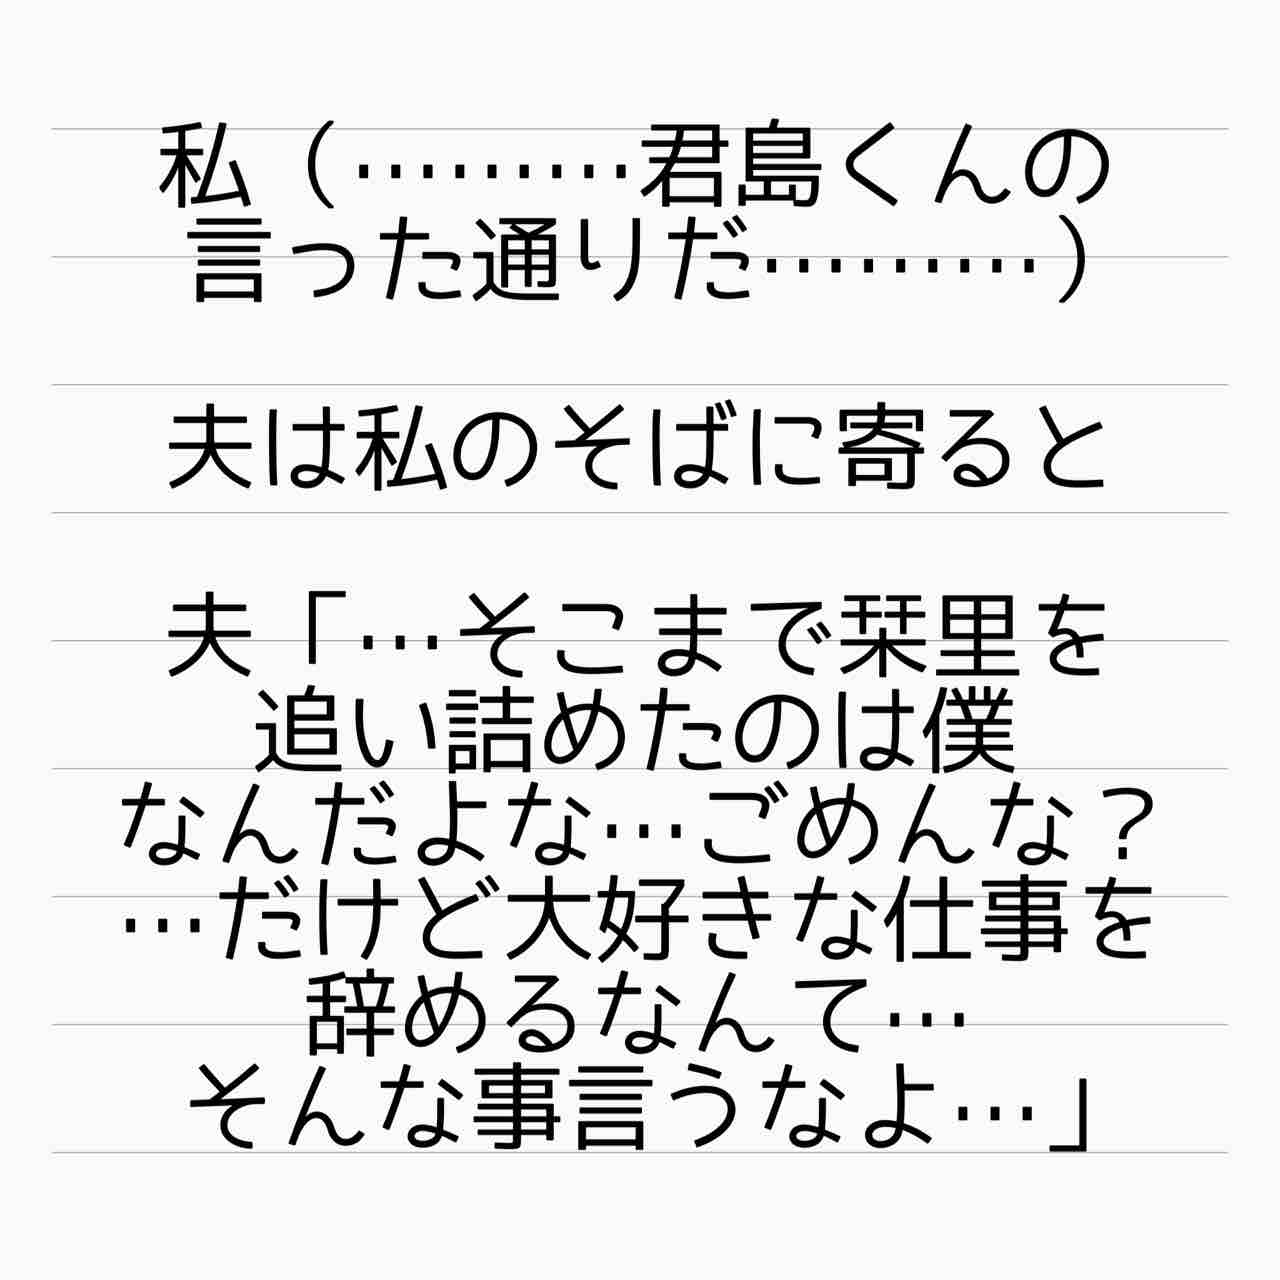 私（………君島くんの
言った通りだ………）
夫は私のそばに寄ると
夫「…そこまで栞里を
追い詰めたのは僕
なんだよな…ごめんな？
…だけど大好きな仕事を
辞めるなんて…
そんな事言うなよ…」